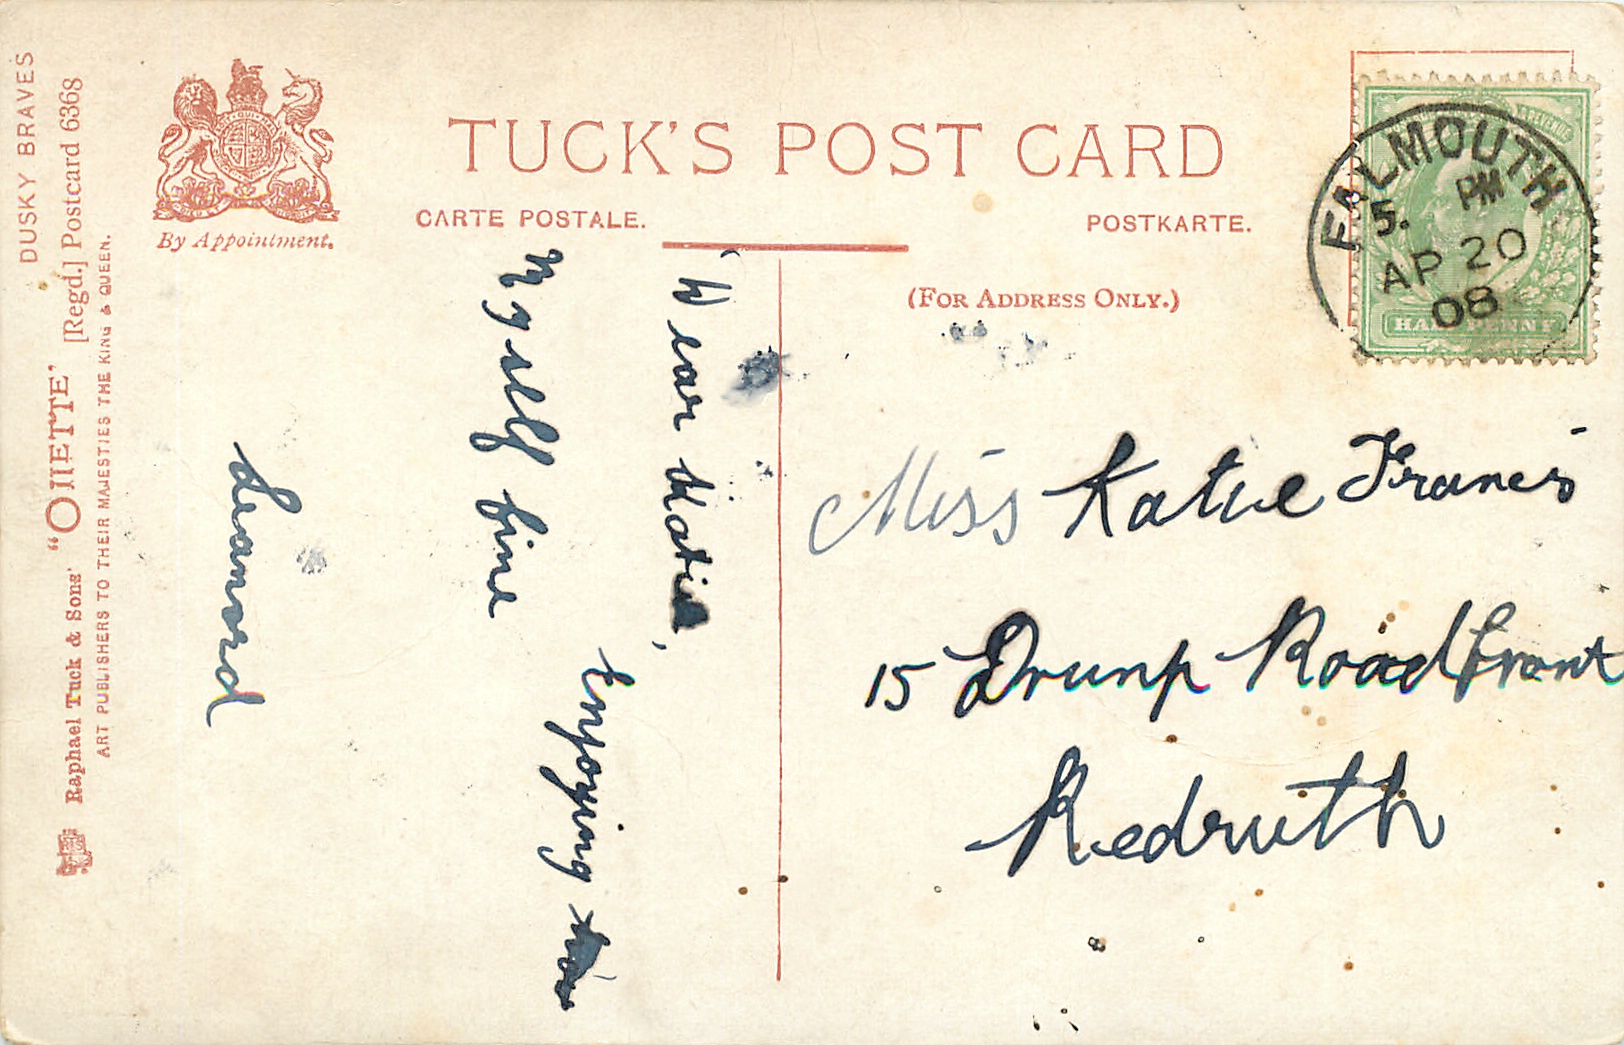 DUSKY BRAVES
Raphael Tuck & Sons' "OILETTE" [Regd.] Postcard 6368
ART PUBLISHERS TO THEIR MAJESTIES THE KING & QUEEN.
By Appointment.
TUCK'S POST CARD
CARTE POSTALE.
POSTKARTE.
(FOR ADDRESS ONLY.)
FALMOUTH
5. PM
AP 20
08
HALFPENNY
Dear Katie,
Enjoying
Myself fine
Leanord
Miss Katie Francis
15 Drump Road front
Redruth